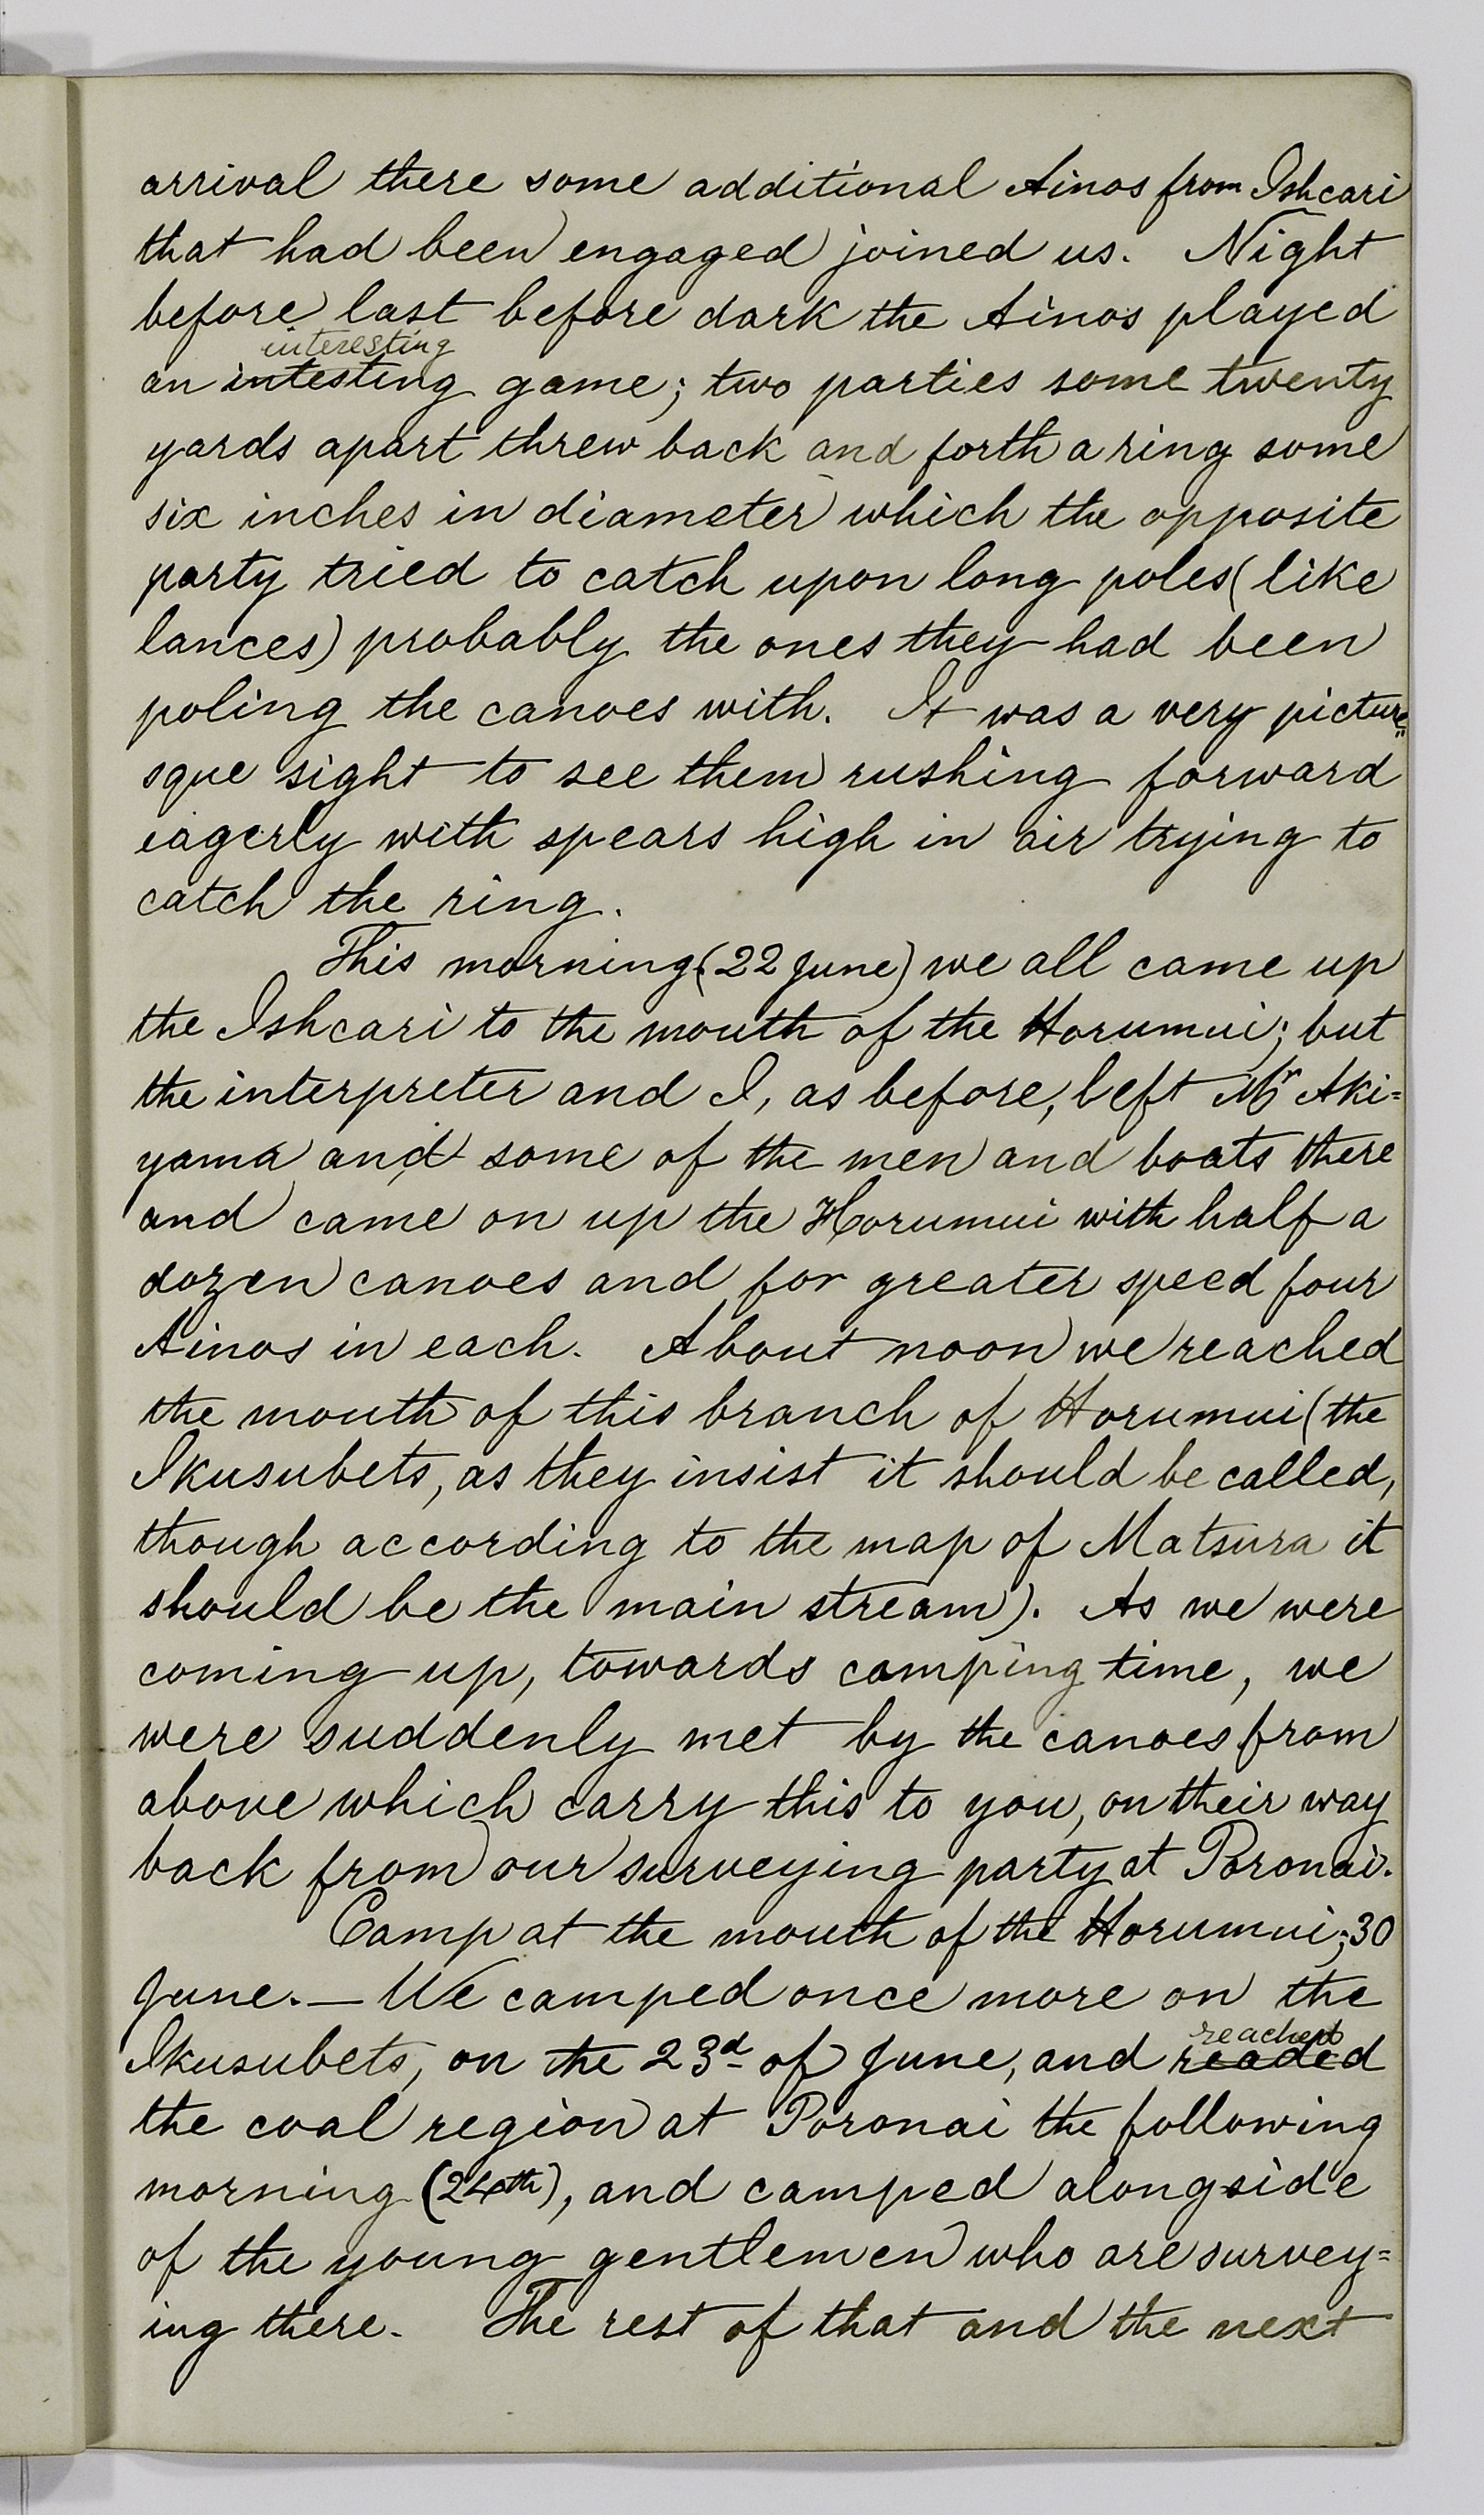 arrival there some additional Ainos from Ishcari
that had been engaged joined us. Night
before last before dark the Ainos played
interesting
an intesting game; two parties some twenty
yards apart threw back and forth a ring some
six inches in diameter which the opposite
party tried to catch upon long poles (like
lances) probably the ones they had been
poling the canoes with. It was a very picture
sque sight to see them rushing forward
eagerly with spears high in air trying to
catch the ring.
This morning (22 June) we all came up
the Ishcari to the mouth of the Horumui; but
the interpreter and I, as before, left Mr Aki=
yama and some of the men and boats there
and came on up the Horumui with half a
dozen canoes and for greater speed four
Ainos in each. About noon we reached
the mouth of this branch of Horumui (the
Ikusubets, as they insist it should be called,
though according to the map of Matsura it
should be the main stream). As we were
coming up, towards camping time, we
were suddenly met by the canoes from
above which carry this to you, on their way
back from our surveying party at Poronai.
Camp at the mouth of the Horumui; 30
June. — We camped once more on the
reached
Ikusubets, on the 23d of June, and readed
the coal region at Poronai the following
morning (24th), and camped alongside
of the young gentlemen who are survey=
ing there. The rest of that and the next